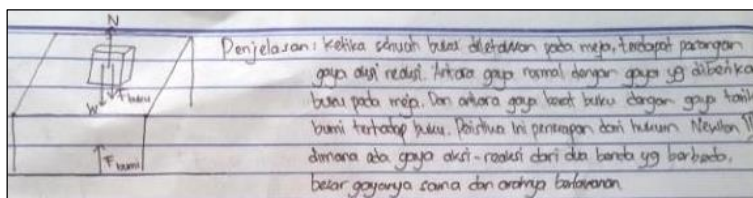 N
Penjelasan: Ketika sebuah buku diletakkan pada meja, terdapat pasangan
gaya aksi reaksi. Antara gaya normal dengan gaya yg diberika
buku pada meja. Dan antara gaya berat buku dengan gaya tarik
W F buku
bumi terhadap buku. Peristiwa ini penerapan dari hukum Newton III
dimana ada gaya aksi-reaksi dari dua benda yg berbeda,
F bumi
besar gayanya sama dan arahnya berlawanan